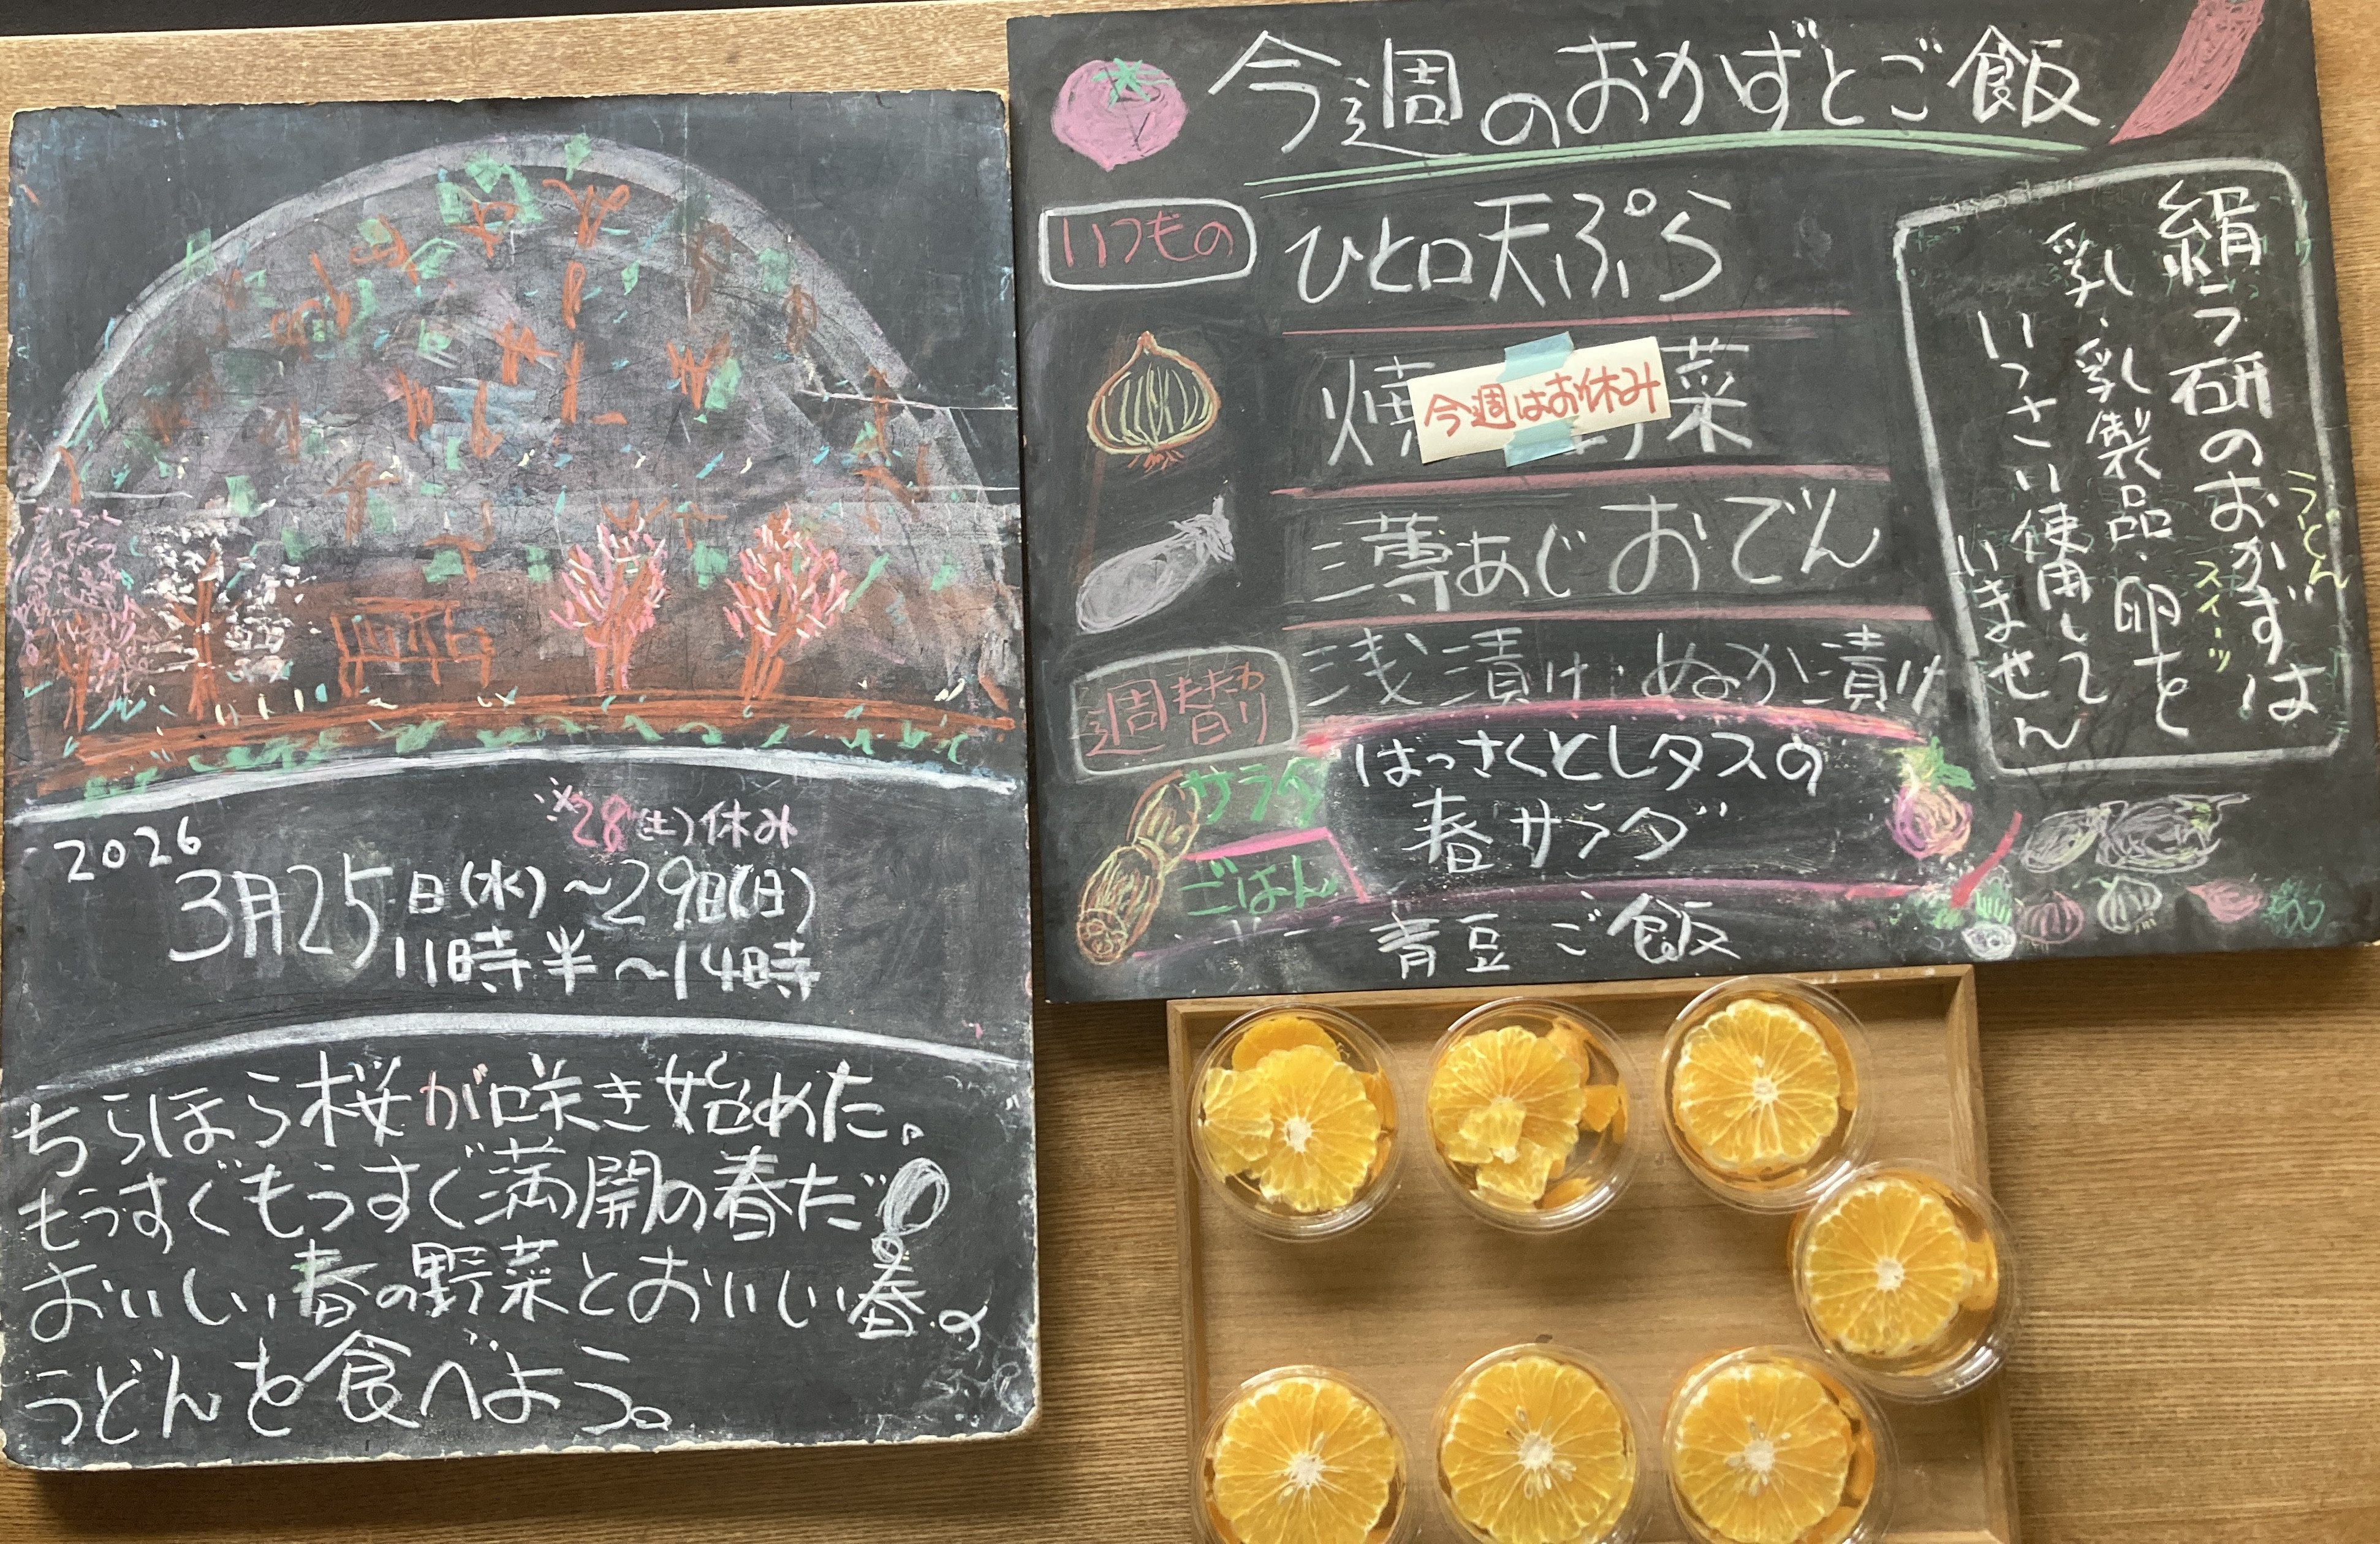 2026
※28(土)休み
3月25日(水)~29日(日)
11時半~14時
ちらほら桜が咲き始めた。
もうすぐもうすぐ満開の春だ
おいしい春の野菜とおいしい春の
うどんを食べよう。
今週のおかずとご飯
いつもの
ひと口天ぷら
焼 野菜
今週はお休み
薄あじおでん
浅漬け・ぬか漬け
週替り
かわ
サラダ
はっさくとレタスの
春サラダ
ごはん
青豆ご飯
うどん
絹ラ研のおかずは
スイーツ
乳・乳製品・卵を
いっさい使用して
いません